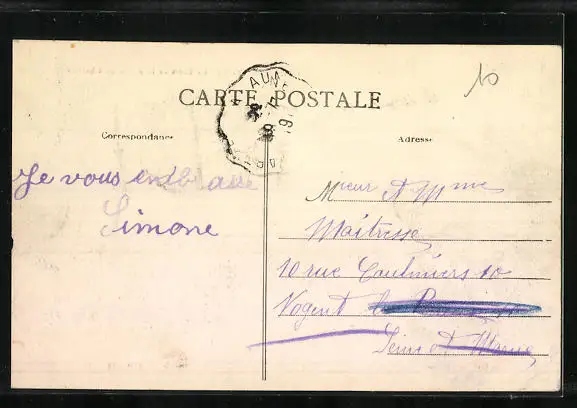 10
AUN
CARTE POSTALE
Correspondance
Adresse
Je vous embrasse
Simone
Mieur et Mme
Maîtresse
10 rue 10
Nogent
Seine et Marne